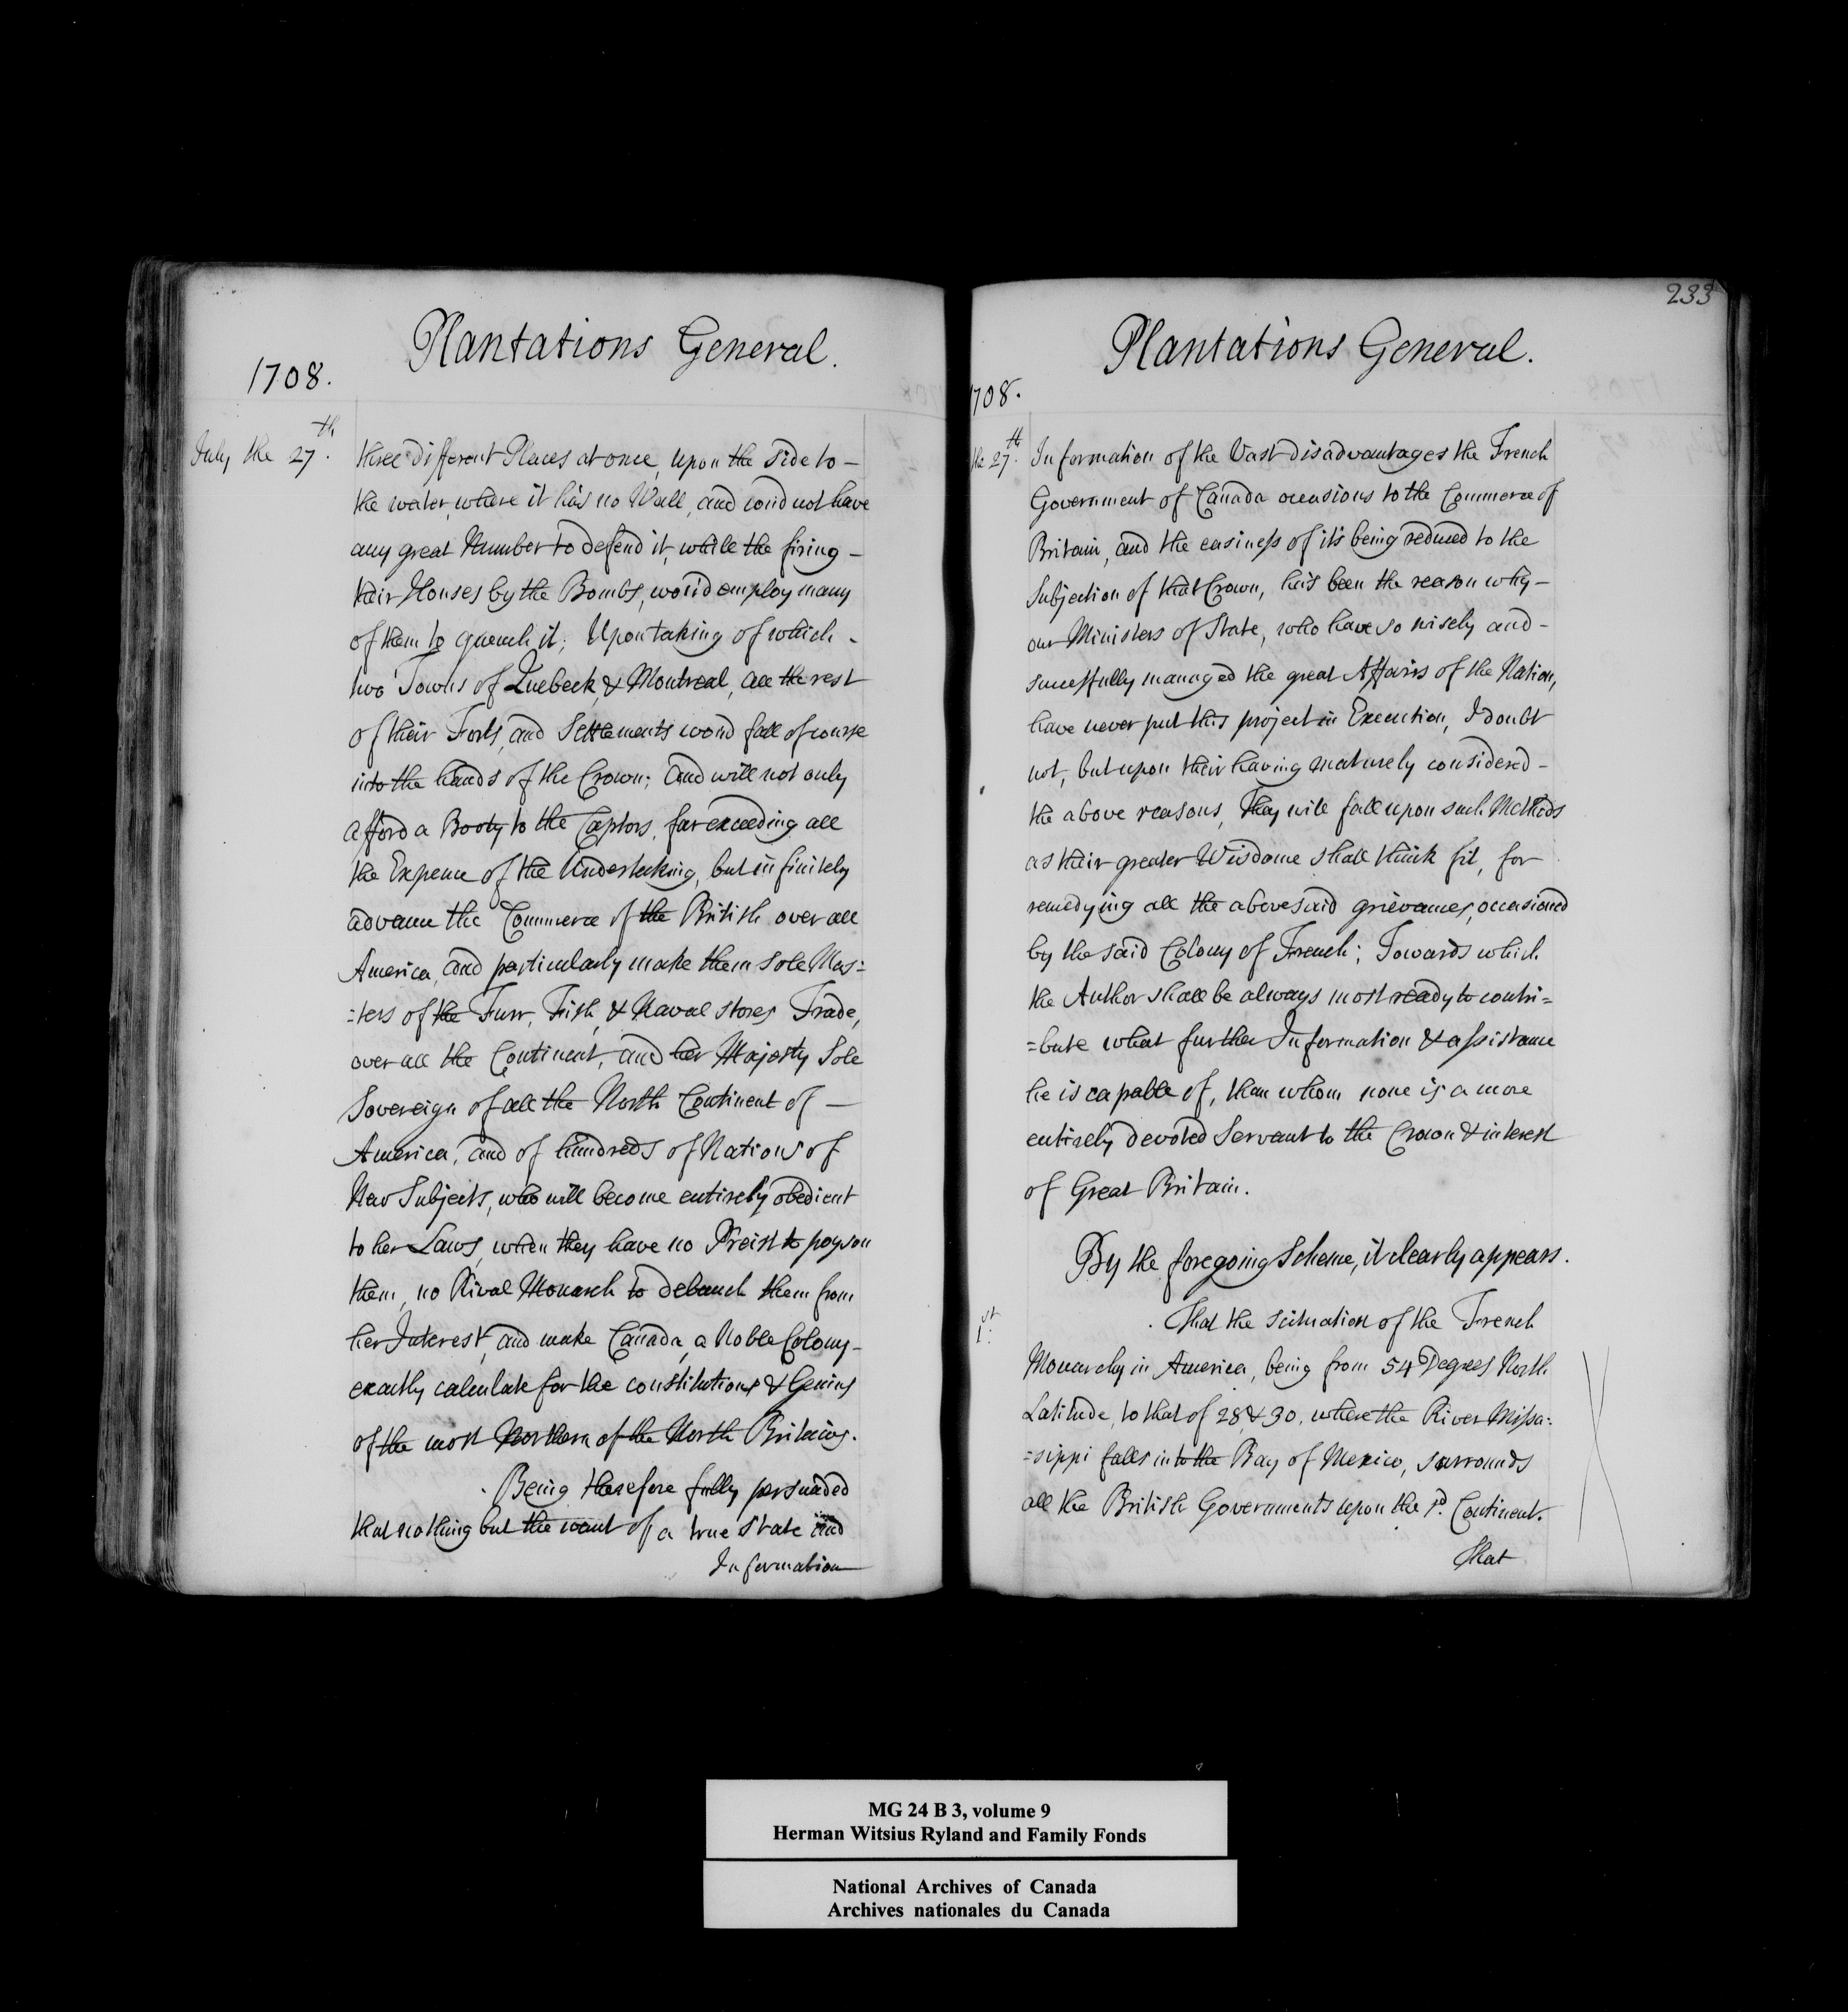 Plantations General.
1708.
July the 27th.
three different Places at once, upon the side to -
the water, where it has no Wall, and woud not have
any great Number to defend it, while the firing -
their Houses by the Bombs, wou'd employ many
of them to quench it; Upon taking of which -
two Towns of Quebeck, & Montreal, all the rest
of their Forts, and Settlements woud fall of course
into the hands of the Crown; And will not only
afford a Booty to the Captors, far exceeding all
the Expence of the Undertaking, but infinitely
advance the Commerce of the British over all
America, and particularly make them sole Mas=
=ters of the Furr, Fish, & Naval stores Trade,
over all the Continent, and her Majesty Sole
Sovereign of all the North Continent of -
America, and of hundreds of Nations of
New Subjects, who will become entirely obedient
to her Laws, when they have no Preist to poyson
them, no Rival Monarch to debauch them from
her Interest, and make Canada, a Noble Colony -
exactly calculate for the constitutions & Genius
of the most Northern of the North Britains.
Being therefore fully persuaded
that nothing but the want of a true state and
Information
233
Plantations General.
1708.
the 27th.
Information of the Vast disadvantages the French
Government of Canada occasions to the Commerce of
Britain, and the easiness of its being reduced to the
Subjection of that Crown, has been the reason why -
our Ministers of State, who have so wisely and -
successfully managed the great Affairs of the Nation,
have never put this project in Execution, I doubt
not, but upon their having maturely considered -
the above reasons, They will fall upon such Methods
as their greater Wisdome shall think fit, for
remedying all the abovesaid grievances, occasioned
by the said Colony of French; Towards which
the Author shall be always most ready to contri=
=bute what further Information & assistance
he is capable of, than whom none is a more
entirely devoted Servant to the Crown & interest
of Great Britain.
By the foregoing Scheme, it clearly appears.
1st: That the scituation of the French
Monarchy in America, being from 54 Degrees North
Latitude, to that of 28, & 30, where the River Missa=
=sippi falls into the Bay of Mexico, surrounds
all the British Governments upon the sd. Continent.
That
MG 24 B 3, volume 9
Herman Witsius Ryland and Family Fonds
National Archives of Canada
Archives nationales du Canada